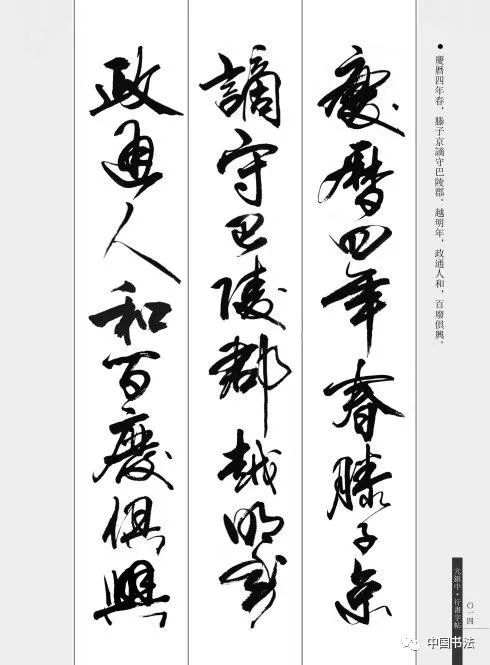 慶曆四年春滕子京
謫守巴陵郡越明年
政通人和百廢俱興
●慶曆四年春，滕子京謫守巴陵郡。越明年，政通人和，百廢俱興。
亢銀中·行書字帖
〇一四
中国书法